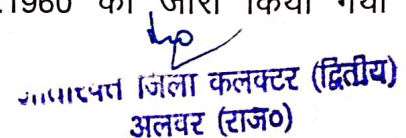 .1960 को जारी किया गया
जिला कलक्टर (द्वितीय)
अलवर (राज०)